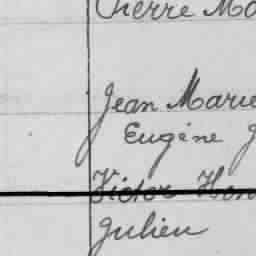 Pierre Ma
Jean Marie
Eugène J
Victor Hon
Julien